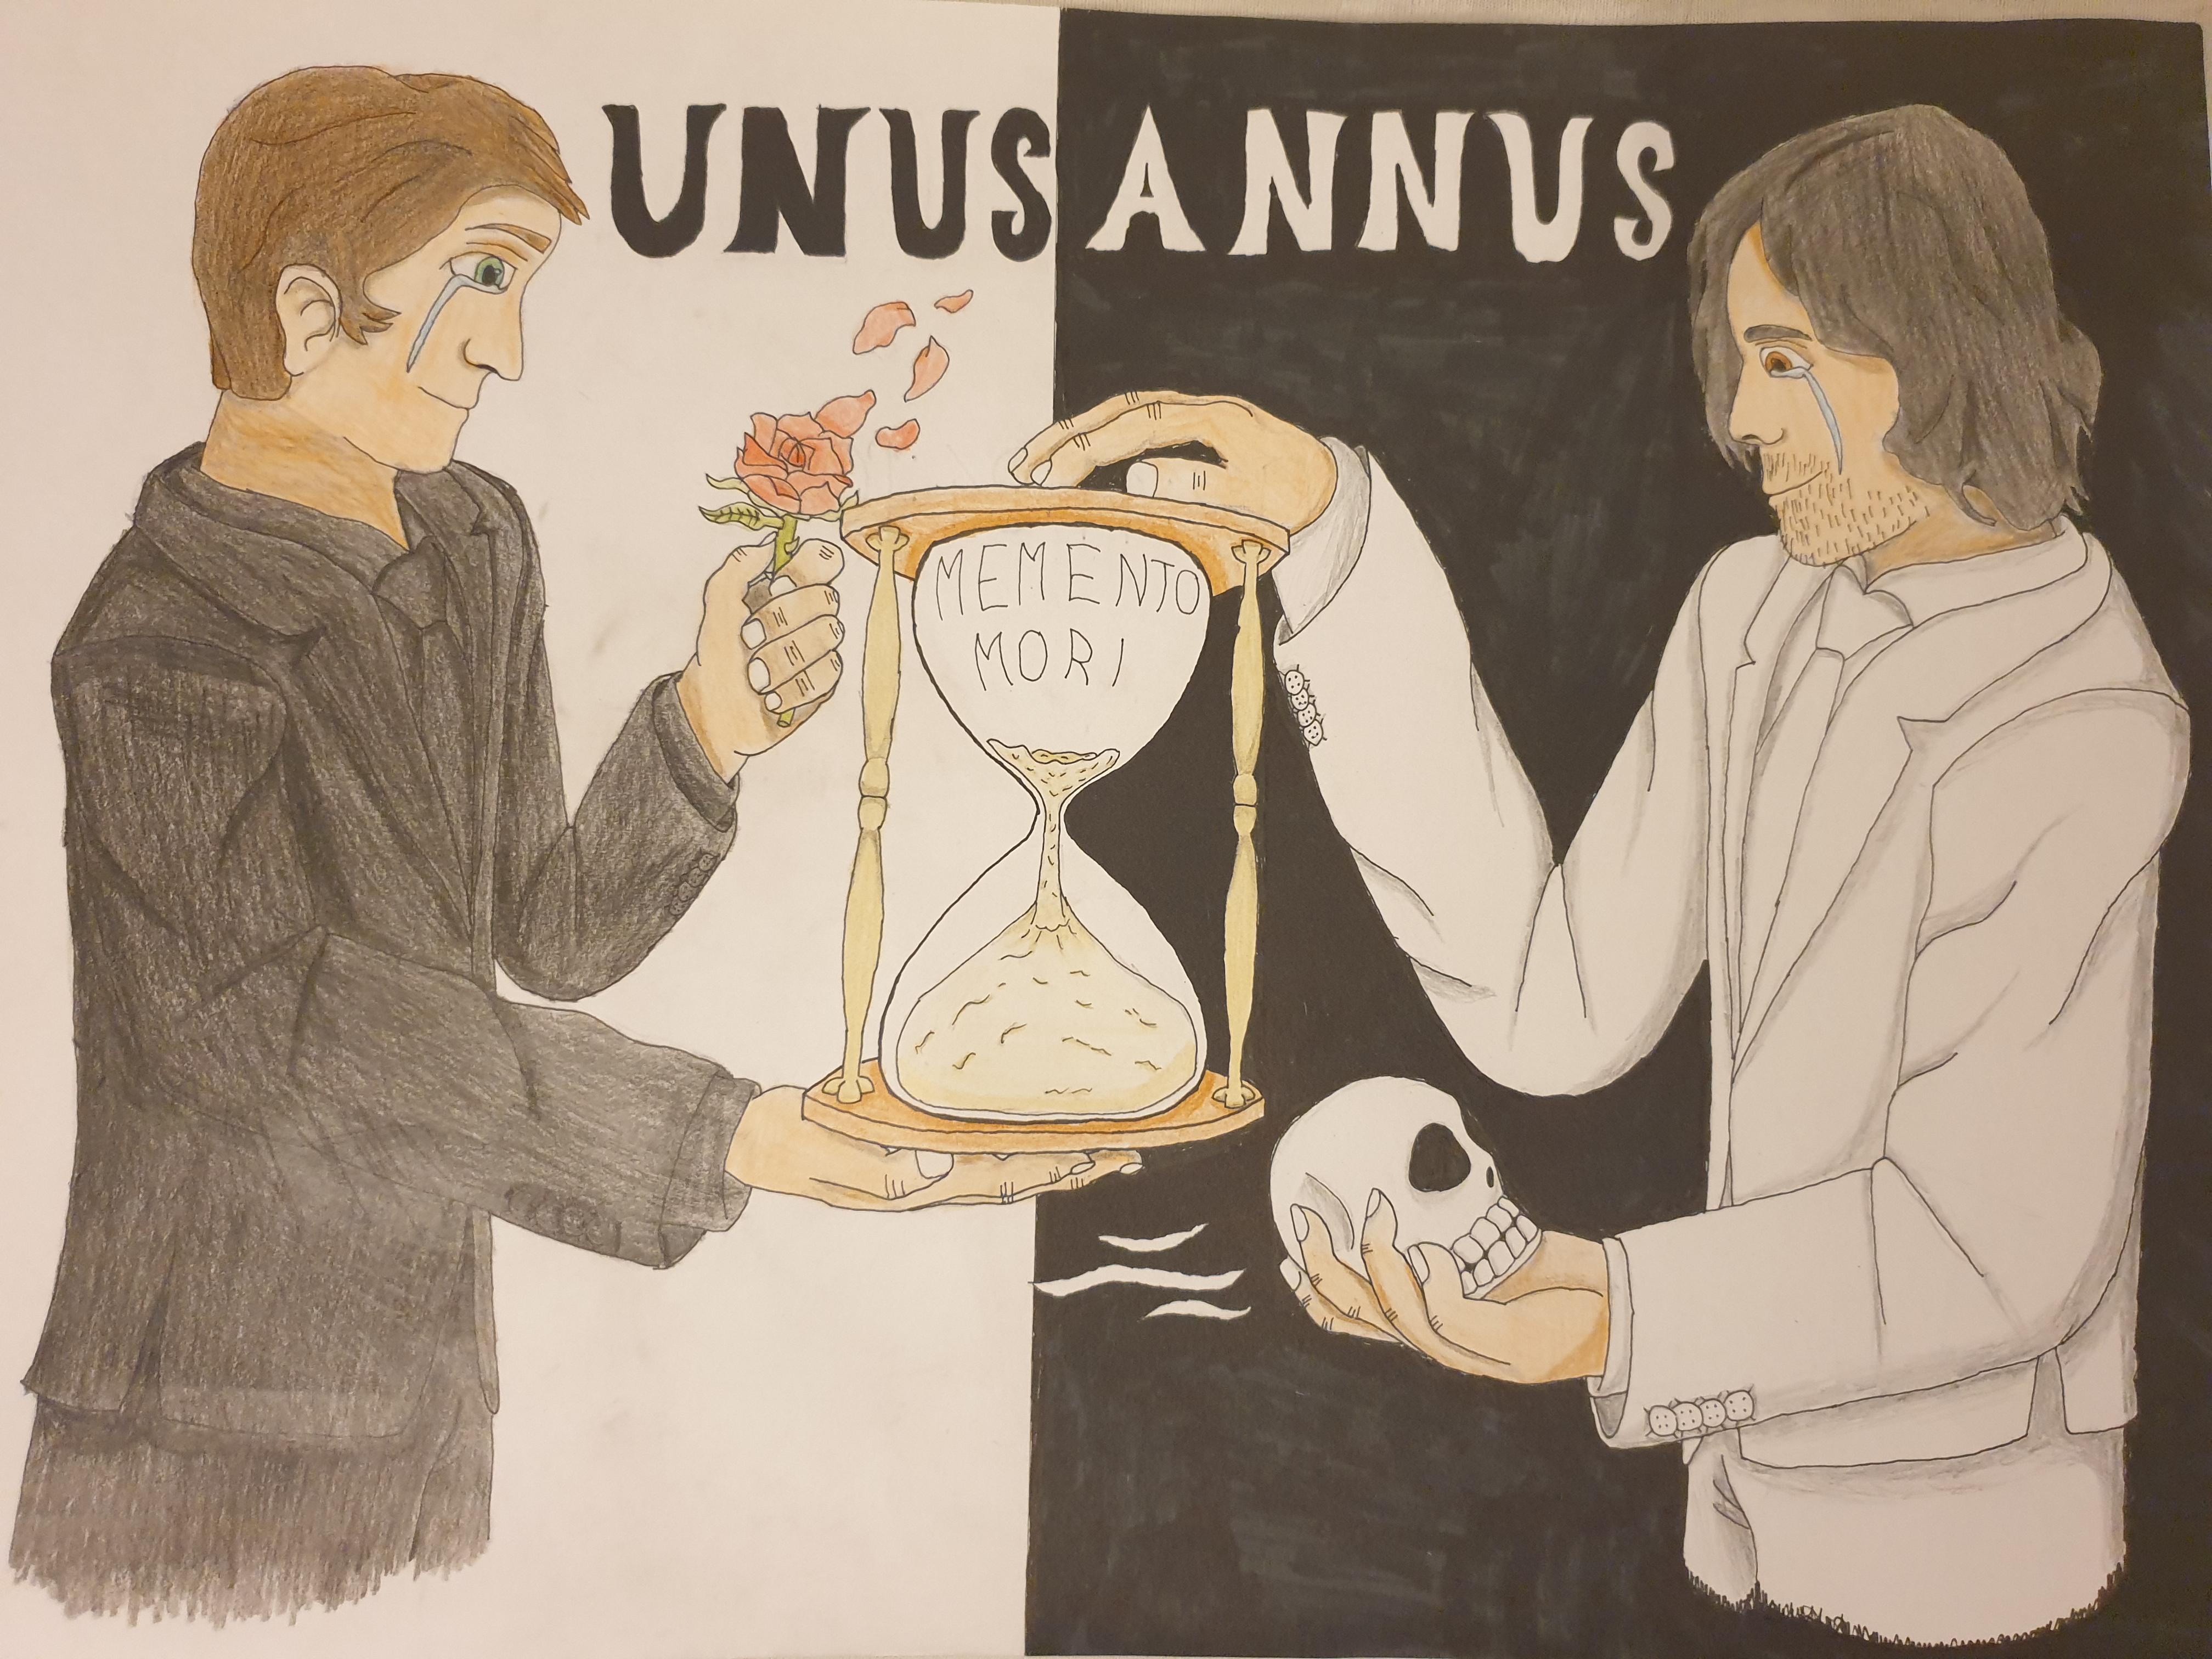 UNUS ANNUS
MEMENTO
MORI